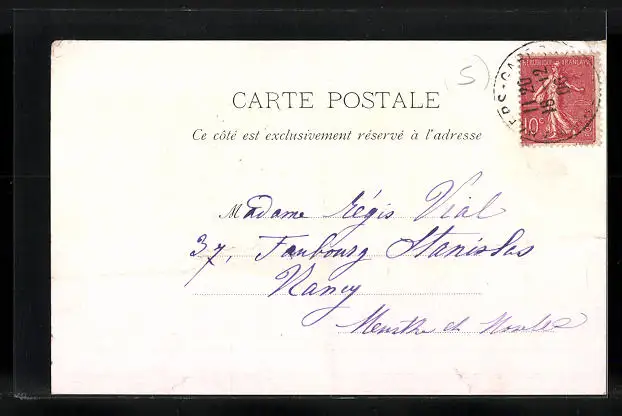 (S)
RÉPUBLIQUE FRANÇAISE
10c
11 20
18 12
CARTE POSTALE
Ce côté est exclusivement réservé à l'adresse
Madame Régis Vial
37, Faubourg Stanislas
Nancy
Meurthe et Moselle